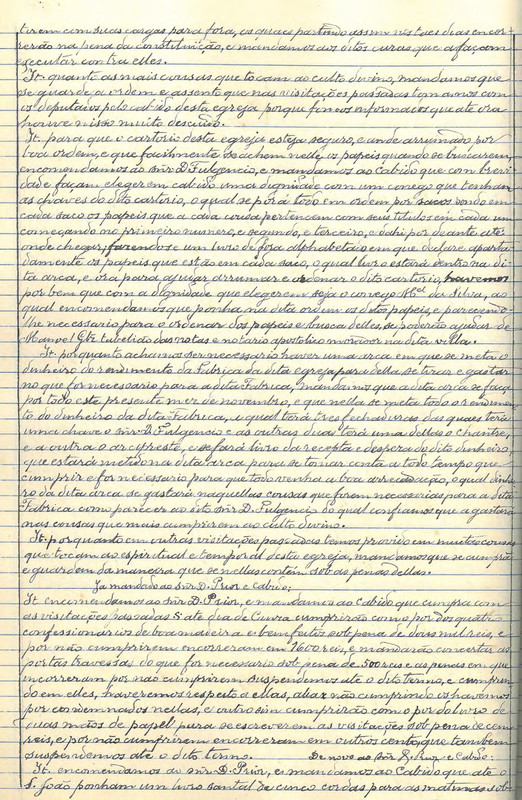 tirem com suas cargas para fora, os quaes partindo assim nestes dias encor-
rerão na pena da constituição, e mandamos aos ditos curas que a façam
executar contra elles.
It. quanto as mais cousas que tocam ao culto divino, mandamos que
se guarde a ordem e assento que nas visitações passadas tomamos com
os deputados pelo cabido desta egreja porque fomos informados que até ora
houve nisso muito descuido.
It. para que o cartorio desta egreja esteja seguro, e ande arrumado por
boa ordem, e que facilmente se achem nelle os papeis quando se buscarem,
encomendamos ao snr D. Fulgencio, e mandamos ao Cabido que com brevi-
dade façam eleger em cabido uma dignidade com um conego que tenham
as chaves do dito cartorio, o qual se porá todo em ordem por sacos pondo em
cada saco os papeis que a cada cousa pertencem com seus titulos em cada um
começando no primeiro numero, e segundo, e terceiro, e dahi por deante até
onde chegar, fazendo-se um livro de fora alphabeta em que declare aparta-
damente os papeis que estão em cada saco, o qual livro estará dentro na di-
ta arca, e ora para ajudar arrumar e ordenar o dito cartorio, havemos
por bem que com a dignidade que elegerem seja o conego Mel da Silva, ao
qual encomendamos que ponha na dita ordem os ditos papeis, e parecendo-
lhe necessario para o ordenar dos papeis e busca delles, se poderão ajudar de
Manoel Glz tabelião das notas e notario apostolico morador na dita villa.
It. porquanto achamos ser necessario haver uma arca em que se meta o
dinheiro do rendimento da Fabrica da dita egreja para della se tirar e gastar
no que for necessario para a dita Fabrica, mandamos que a dita arca se faça
por todo este presente mez de novembro, e que nella se meta todo o rendimen-
to do dinheiro da dita Fabrica, a qual terá tres fechaduras das quaes terá
uma chave o snr D. Fulgencio e as outras duas terá uma dellas o chantre,
e a outra o arcipreste, e se fará livro da receita e despeza do dito dinheiro,
que estará metido na dita arca para se tomar conta a todo tempo que
cumprir e for necessario para que todo venha a boa arrecadação, o qual dinhei-
ro da dita arca se gastará naquellas cousas que forem necessarias para a dita
Fabrica como parecer ao dito snr D. Fulgencio do qual confiamos que a gastará
nas cousas que mais cumprirem ao culto divino.
It. porquanto em outras visitações passadas temos provido em muitas cousas
que tocam ao espiritual e temporal desta egreja, mandamos que se cumprão
e guardem da maneira que se nellas contém sob as penas dellas.
Ja mandado ao snr D. Prior e Cabido:
It. encomendamos ao snr D. Prior, e mandamos ao Cabido que cumpra com
as visitações passadas s. até dia de cumprirão como por dos quatro
confessionarios de boa madeira e bem feitos sob pena de dous mil reis, e
por não cumprirem encorreram em 1600 reis, e mandarão concertar as
portas travessas do que for necessario sob pena de 500 reis e as penas em que
incorreram por não cumprirem suspendemos até o dito termo, e cumprin-
do em elles, haveremos respeito a ellas, aliaz não cumprindo os havemos
por condemnados nellas, e outro sim cumprirão como o por do livro de
mãos de papel para se escreverem as visitações sob pena de cem
reis, e por não cumprirem encorreram em outros cento, que tambem
suspendemos até o dito termo. De novo ao snr D. Prior e Cabido:
It. encomendamos ao snr D. Prior, e mandamos ao Cabido que até o
S. João ponham um livro santal de cinco cordas para as matinas sob